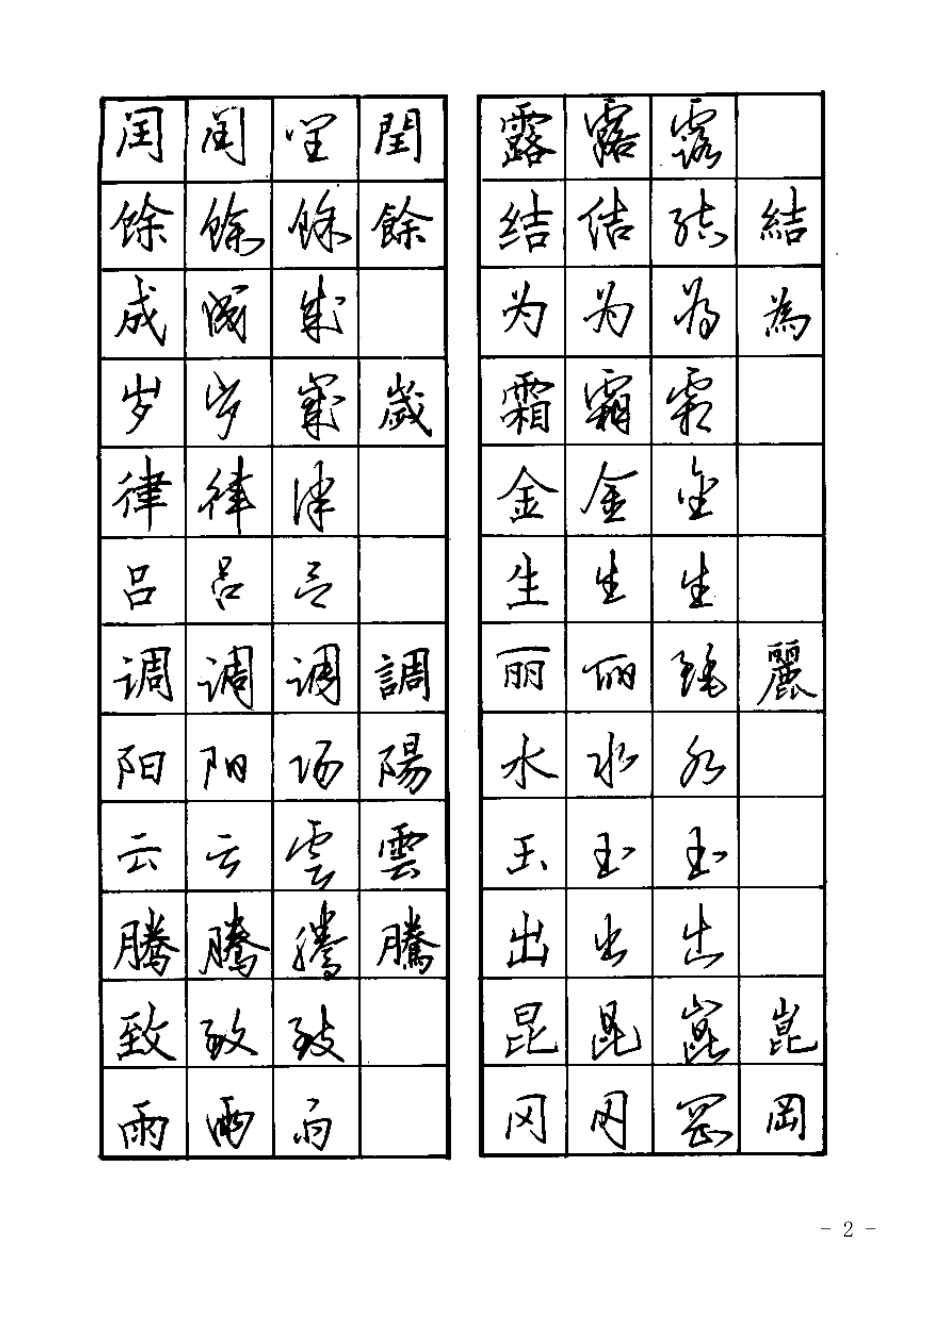 闰 闰 闰 閏
馀 馀 馀 餘
成 成 成
岁 岁 歲 歲
律 律 律
吕 吕 吕
调 调 调 調
阳 阳 阳 陽
云 云 雲 雲
腾 腾 騰 騰
致 致 致
雨 雨 雨
露 露 露
结 结 结 結
为 为 為 為
霜 霜 霜
金 金 金
生 生 生
丽 丽 麗 麗
水 水 水
玉 玉 玉
出 出 出
昆 昆 崑 崑
冈 冈 岡 岡
- 2 -